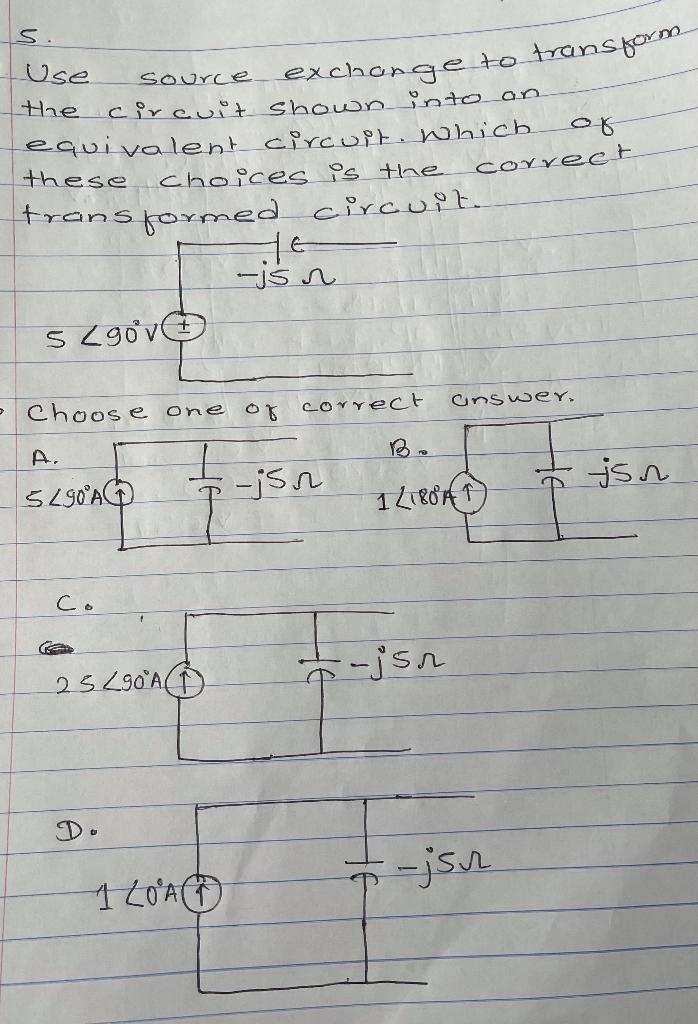 5.
Use source exchange to transform
the circuit shown into an
equivalent circuit. Which of
these choices is the correct
transformed circuit.
-j5 Ω
5 ∠90° V
Choose one of correct answer.
A.
5∠90°A
-j5Ω
B.
1∠180°A
-j5Ω
C.
25∠90°A
-j5Ω
D.
1∠0°A
-j5Ω